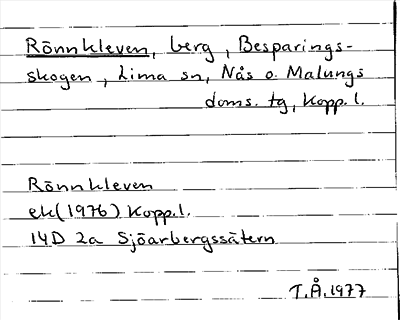 Rönnkleven, berg, Besparings-
skogen, Lima sn, Nås o. Malungs
doms. tg, Kopp. l.
Rönnkleven
ek (1976) Kopp. l.
14D 2a Sjöarbergssätern
T.Å. 1977